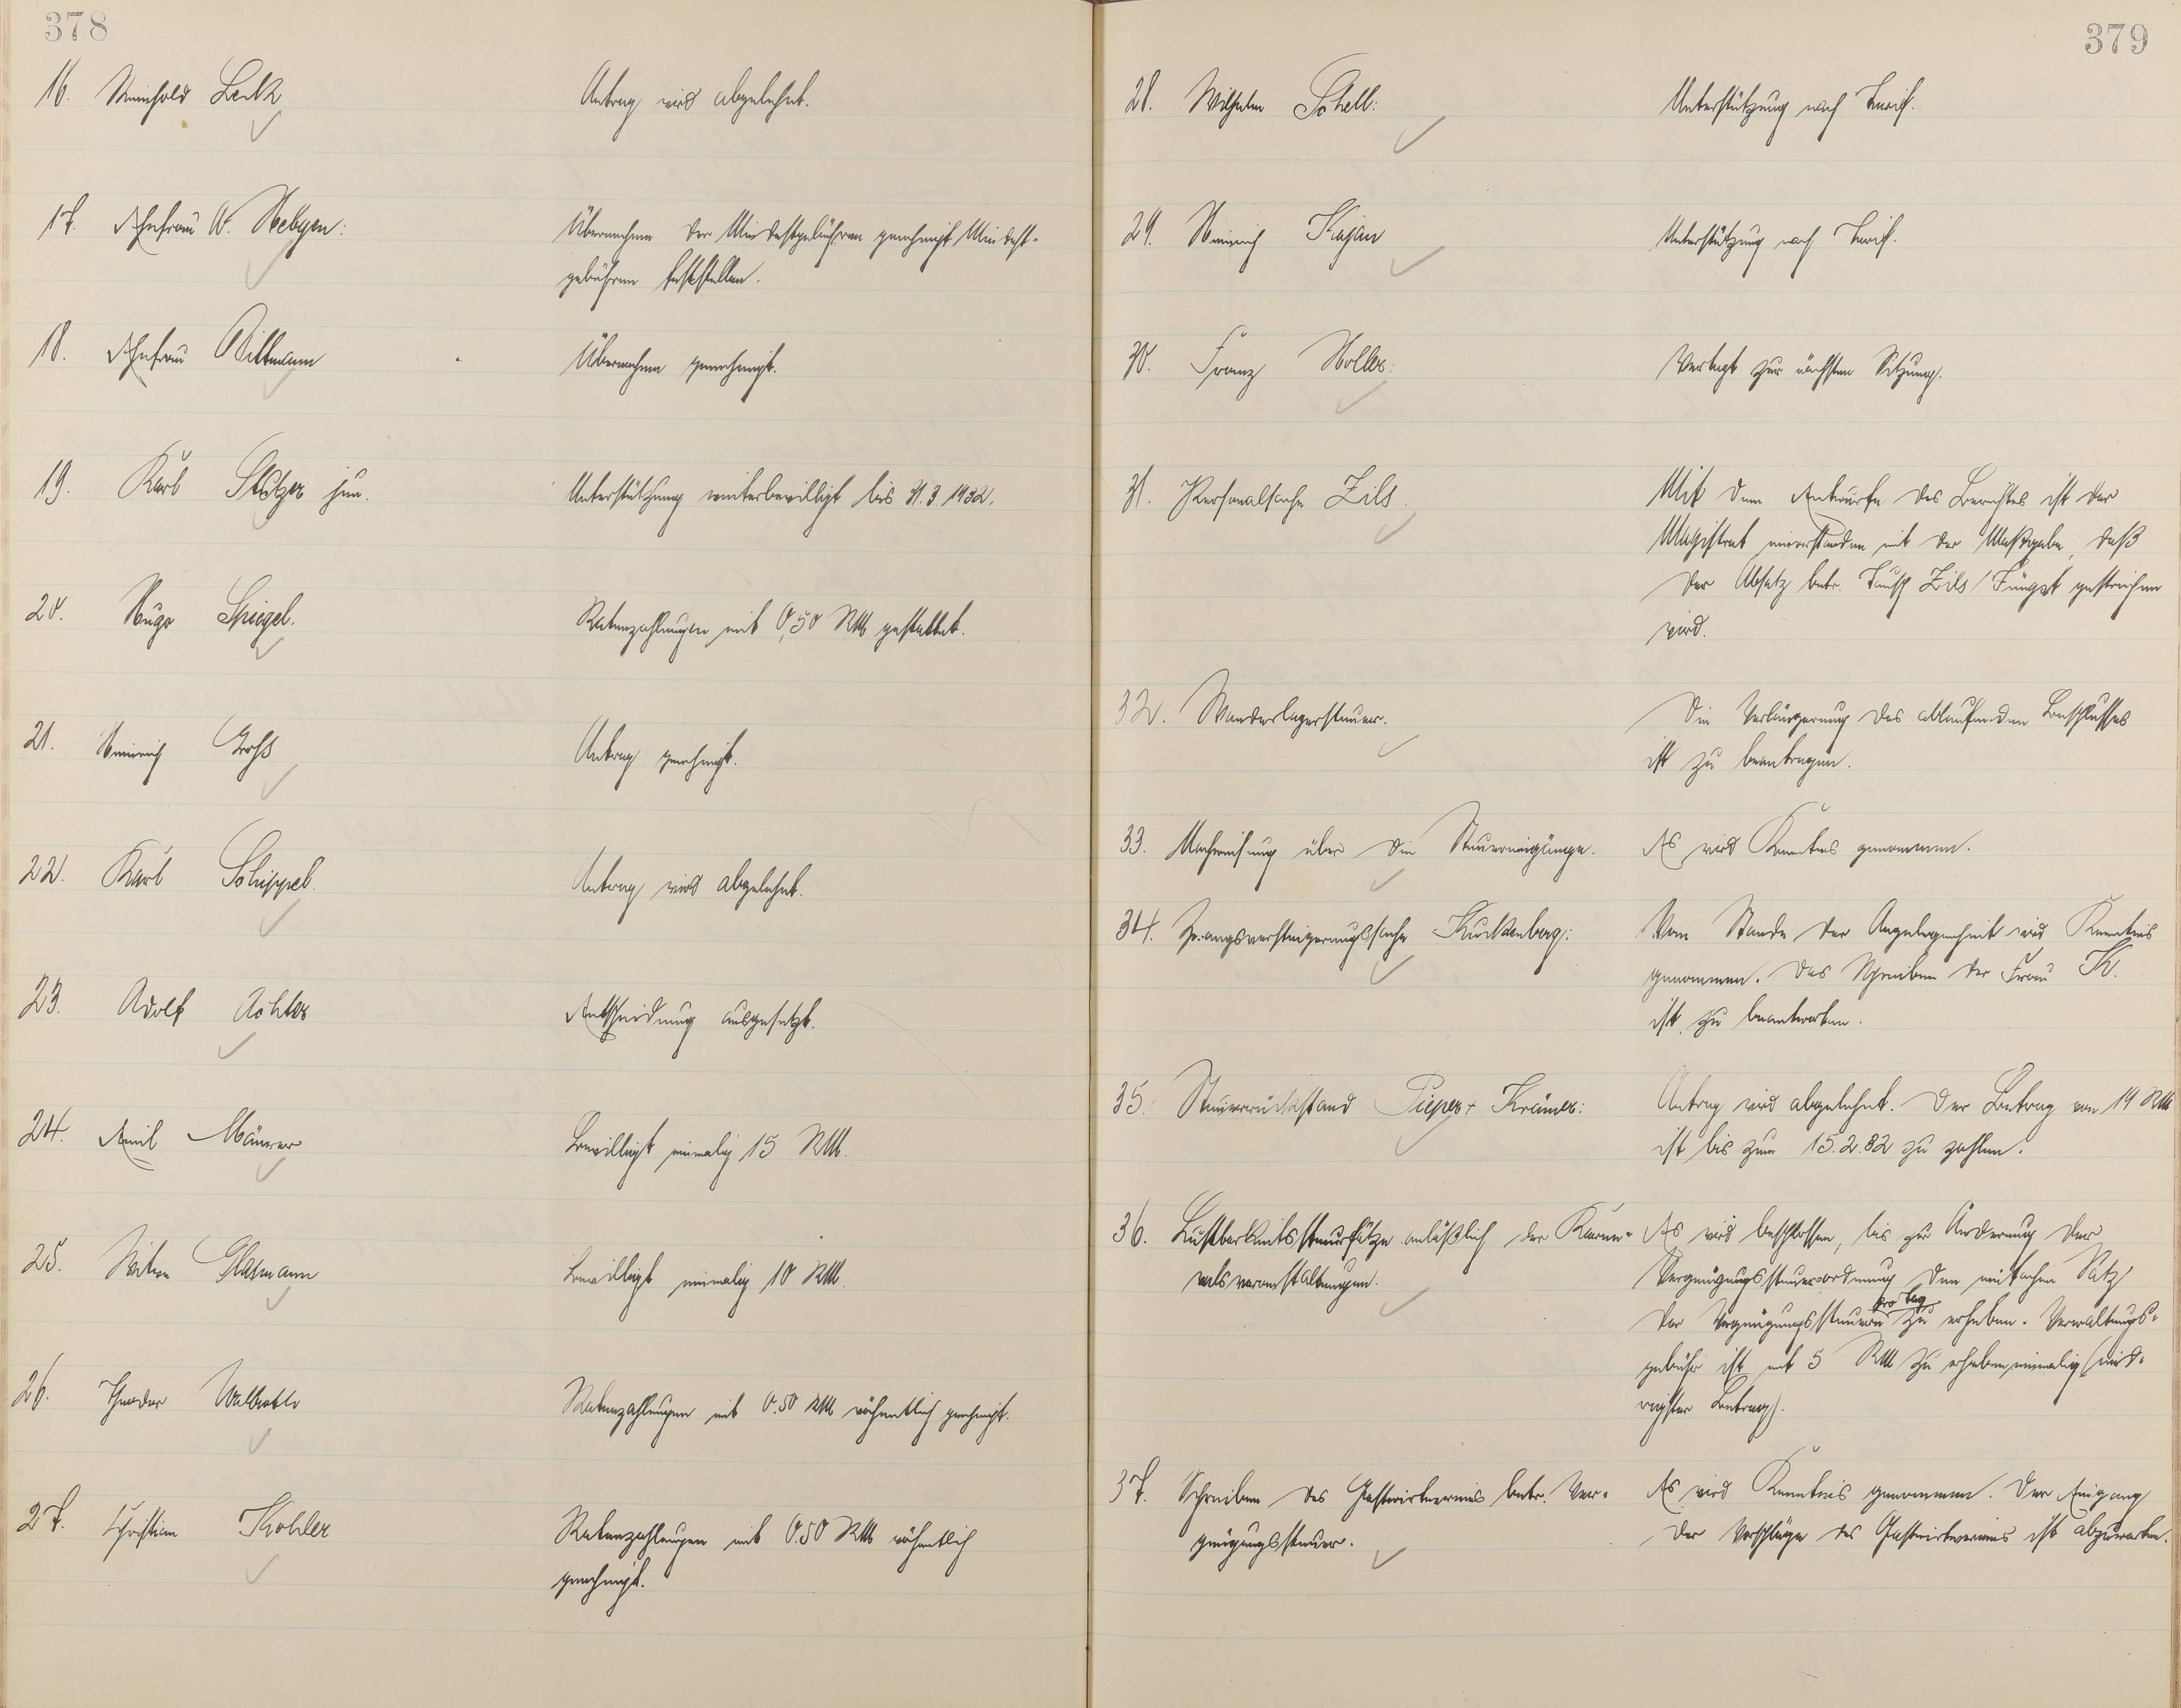 378
16. Reinhold Lenk
Antrag wird abgelehnt.
17. Ehefrau W. Nebgen:
Übernahme der Mindestgebühren genehmigt Mindest-
gebühren feststellen.
18. Ehefrau Dillmann
Übernahme genehmigt.
19. Karl Stolzer jun.
Unterstützung weiterbewilligt bis 31.3.1932.
20. Hugo Spiegel.
Ratenzahlungen mit 0,50 RM gestattet.
21. Heinrich Groß
Antrag genehmigt.
22. Karl Schippel.
Antrag wird abgelehnt.
23. Adolf Achler
Entscheidung ausgesetzt.
24. Emil Männer
Bewilligt einmalig 15 RM.
25. Witwe Glasmann
Bewilligt einmalig 10 RM.
26. Theodor
Ratenzahlungen mit 0.50 RM wöchentlich genehmigt.
27. Christian Kohler
Ratenzahlungen mit 0.50 RM wöchentlich
genehmigt.
379
28. Wilhelm Schell:
Unterstützung nach Tarif.
29. Heinrich Kajan
Unterstützung nach Tarif.
30. Franz Holler:
Vertagt zur nächsten Sitzung.
31. Personalsache Zils.
Mit dem Entwurfe des Berichtes ist der
Magistrat einverstanden mit der Maßgabe, daß
der Absatz betr. Tausch Zils/Füngst gestrichen
wird.
32. Wanderlagersteuer.
Die Verlängerung des ablaufenden Beschlusses
ist zu beantragen.
33. Nachweisung über die Steuereingänge.
Es wird Kenntnis genommen.
34. Zwangsversteigerungssache Kuckenberg:
Vom Stande der Angelegenheit wird Kenntnis
genommen. Das Schreiben der Frau K.
ist zu beantworten.
35. Steuerrückstand Pieper + Krämer:
Antrag wird abgelehnt. Der Betrag von 19 RM
ist bis zum 15.2.32 zu zahlen.
36. Lustbarkeitssteuersätze anläßlich der Karne-
valsveranstaltungen.
Es wird beschlossen, bis zur Änderung der
Vergnügungssteuerordnung den einfachen Satz
pro Tag
der Vergnügungssteuern zu erheben. Verwaltungs-
gebühr ist mit 5 RM zu erheben, einmalig (nied-
rigster Betrag).
37. Schreiben des Gastwirtevereins betr. Ver-
gnügungssteuer.
Es wird Kenntnis genommen. Der Eingang
der Vorschläge des Gastwirtevereins ist abzuwarten.